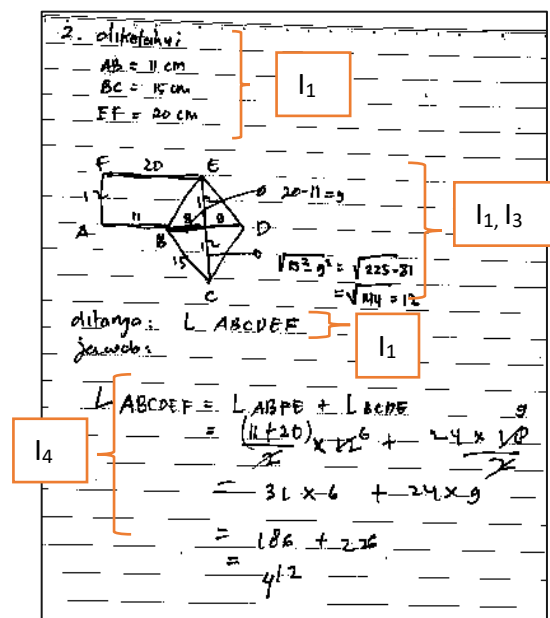 2. diketahui
AB = 11 cm
BC = 15 cm
EF = 20 cm
I1
F 20 E
12 12 20-11=9
A 11 B 9 9 D
15 12
C
√15²-9² = √225-81
= √144 = 12
I1, I3
ditanya: L ABCDEF
I1
jawab:
L ABCDEF = L ABFE + L BCDE
= (11+20)/2 × 12 6 + 24 × 18 9/2
= 31 × 6 + 24 × 9
= 186 + 226
= 412
I4